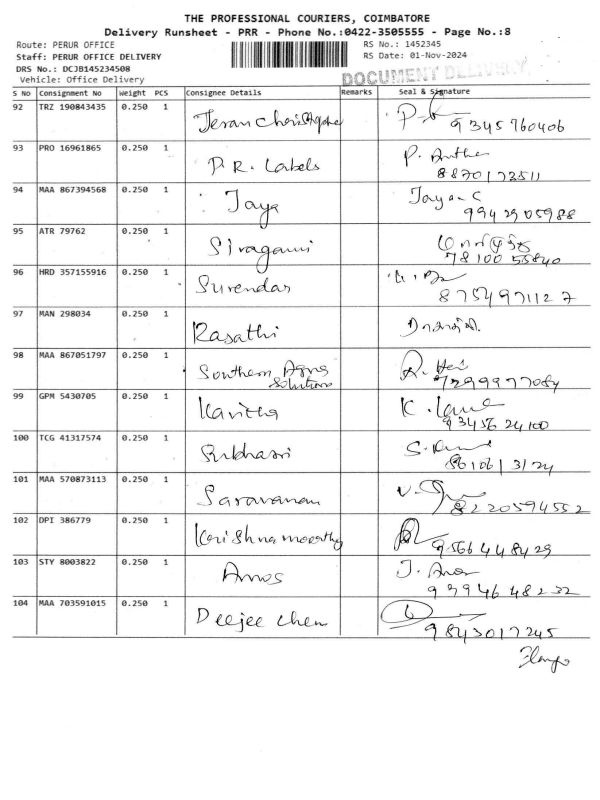 THE PROFESSIONAL COURIERS, COIMBATORE
Delivery Runsheet - PRR - Phone No.:0422-3505555 - Page No.:8
Route: PERUR OFFICE RS No.: 1452345
Staff: PERUR OFFICE DELIVERY RS Date: 01-Nov-2024
DRS No.: DCJB145234508
DOCUMENT DELIVERY
Vehicle: Office Delivery
S No Consignment No Weight PCS Consignee Details Remarks Seal & Signature
92 TRZ 190843435 0.250 1
9345760406
93 PRO 16961865 0.250 1 P.R. Labels P. Antho
8870173511
94 MAA 867394568 0.250 1 Jaya
9942905988
95 ATR 79762 0.250 1 Siragami
78100 55840
96 HRD 357155916 0.250 1 Surendar
8754971127
97 MAN 298034 0.250 1 Rasathi
98 MAA 867051797 0.250 1 Southern Agna
Solutions
7299997084
99 GPM 5430705 0.250 1 Kavitha
93456 24100
100 TCG 41317574 0.250 1
101 MAA 570873113 0.250 1 Saravanan
8220594552
102 DPI 386779 0.250 1 Karishnamoorthy
9566448429
103 STY 8003822 0.250 1 Amos
9394648232
104 MAA 703591015 0.250 1 Deejee chem
9843017245